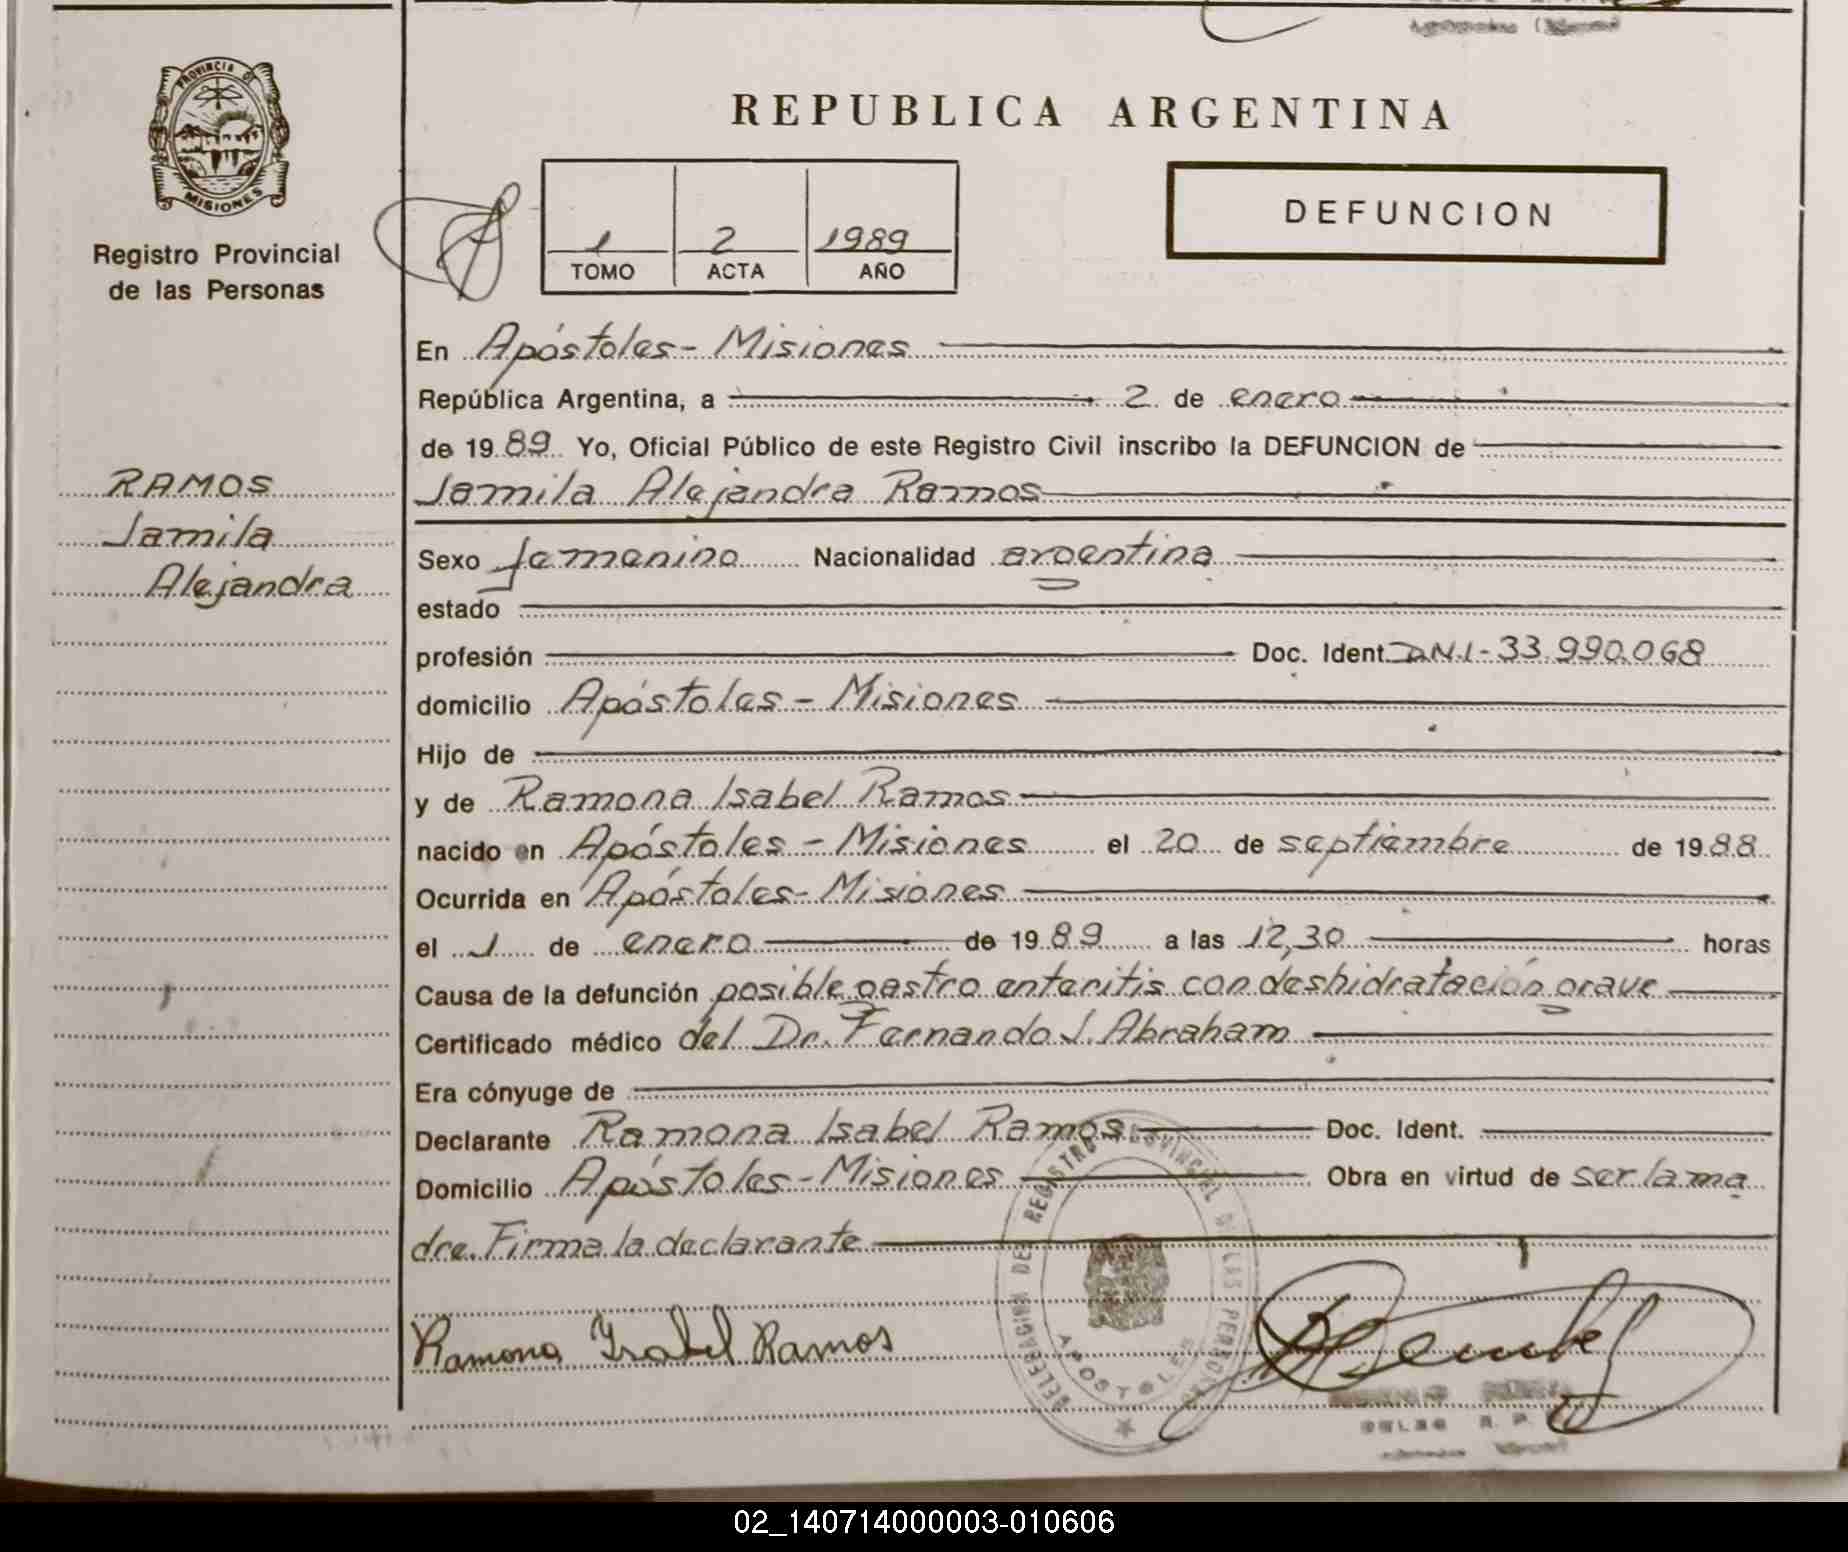 PROVINCIA DE
MISIONES
Registro Provincial
de las Personas
RAMOS
Jamila
Alejandra
REPUBLICA ARGENTINA
1 2 1989
TOMO ACTA AÑO
DEFUNCION
En Apóstoles - Misiones
República Argentina, a 2 de enero
de 1989 Yo, Oficial Público de este Registro Civil inscribo la DEFUNCION de
Jamila Alejandra Ramos
Sexo femenino Nacionalidad argentina
estado
profesión Doc. Ident. D.N.I - 33.990.068
domicilio Apóstoles - Misiones
Hijo de
y de Ramona Isabel Ramos
nacido en Apóstoles - Misiones el 20 de septiembre de 1988
Ocurrida en Apóstoles - Misiones
el 1 de enero de 1989 a las 12,30 horas
Causa de la defunción posible gastro enteritis con deshidratación grave
Certificado médico del Dr. Fernando J. Abraham
Era cónyuge de
Declarante Ramona Isabel Ramos Doc. Ident.
Domicilio Apóstoles - Misiones Obra en virtud de ser la ma
dre. Firma la declarante
Ramona Isabel Ramos
DELEGACION DEL REGISTRO PROVINCIAL DE LAS PERSONAS
APOSTOLES
02_140714000003-010606